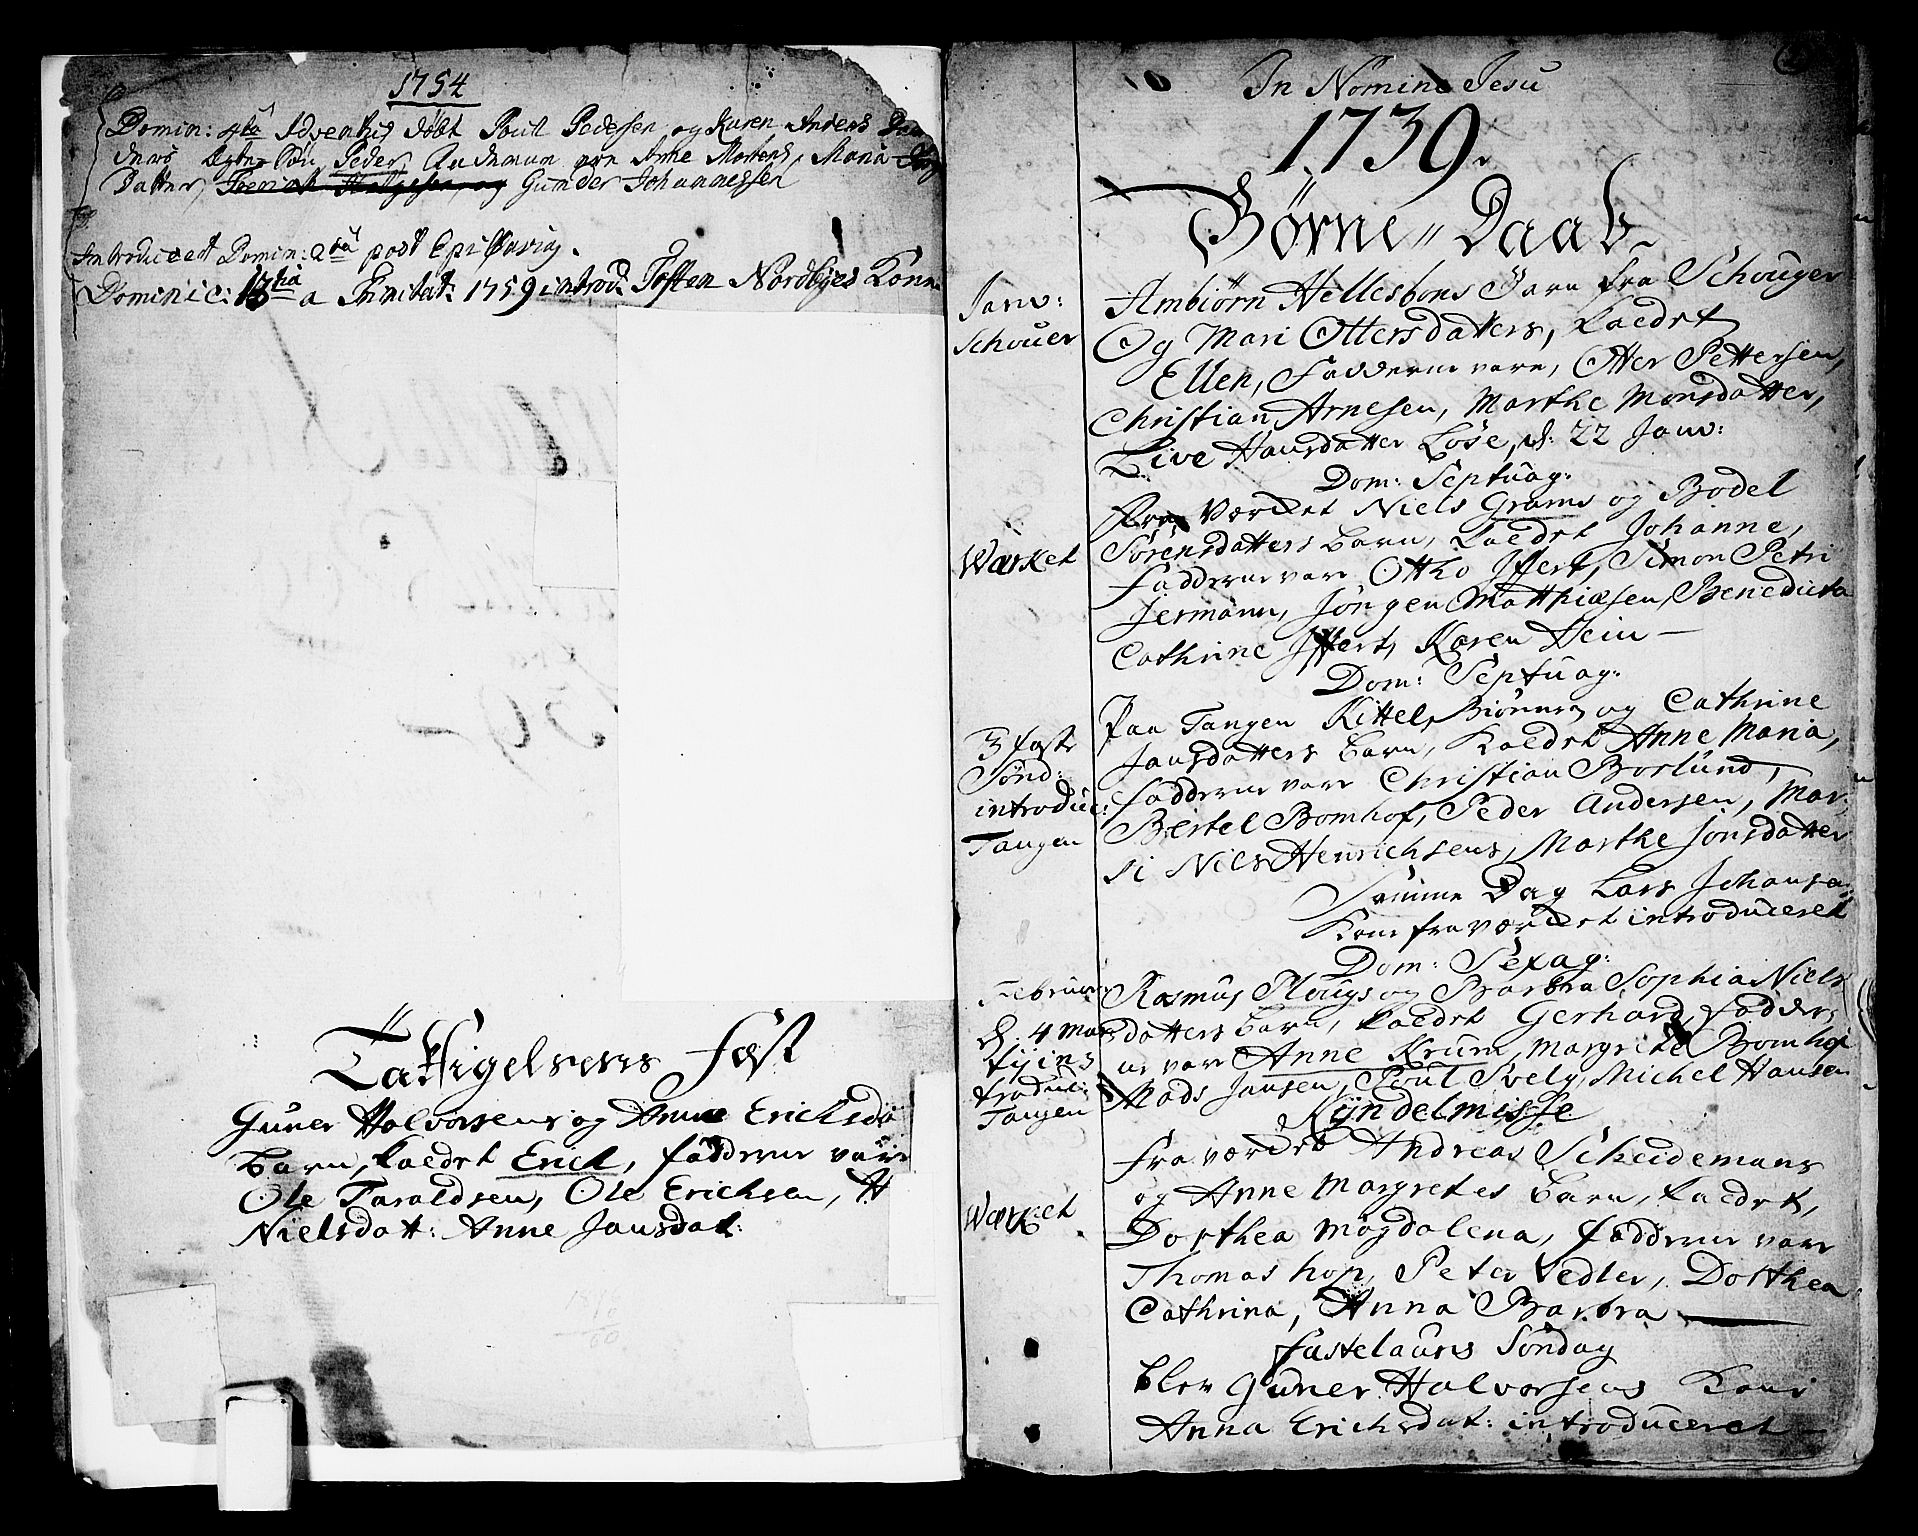 1754
Domin: 4ta Adventus døbt Poul Pedersen og Karen Anders
ders Søn Peder, Fadderne vare Anne Mortens, Maria
Datter, Gunder Johannessen
Introduceret Domin: 2da post Epiphanias.
Dominic: 13tia a Trinitat: 1759 introd. Tosten Nordbyes Kone
Taksigelsens Fæst
Guner Halvorsens og Anne Ericksda
barn, kaldet Erick, fadderne vare
Ole Taraldsen, Ole Ericksen, A
Nielsdatt: Anne Jansdat:
In Nomine Jesu
1739.
Børne-Daab
Janv:
Schouer
Ambiørn Hellesbøns Barn fra Schouger
Og Mari Ottersdatters, kaldet
Ellen, Fadderne vare, Otter Pettersen,
Christian Arnesen, Marthe Monsdatter,
Live Hansdatter Løse, d: 22 Janv:
Dom: Septuag:
Wærket
Fra Værcket Niels Grams og Bodel
Sørensdatters barn, kaldet Johanne,
Fadderne vare Ottho Iffert, Simon Petri
Jermann, Jørgen Matthiæsen, Benedicta
Cathrine Iffert, Karen Hein
Dom: Septuag:
3 faste
Sønd:
introduc:
Tangen
Paa Tangen Kittel Biørns og Cathrine
Jansdatters barn, kaldet Anne Maria,
fadderne vare Christian Borlund,
Bertel Bomhof, Peder Andersen, Mar-
si Niels Henrichsens, Marthe Jonsdatter
Samme Dag Lars Johansens
Kone fra værcket introduceret
Dom: Sexag:
Februar
d. 4 Mar
introduc:
Tangen
Rasmus Plougs og Barbra Sophia Niels
datters barn, kaldet Gerhard, fadder-
ne vare Anne Krum, Margrete Bomhof
Mads Jansen, Poul Svely, Michel Hansen
Kyndelmisse
Wærket
Fra værcket Andreas Scheidemans
og Anne Margretes barn, kaldet,
Dorthea Magdalena, fadderne vare
Thomas hop, Peter Vedler, Dorthea
Cathrina, Anna Barbra
Fastelauns Søndag
blev Guner Halvorsens Kone
Anna Erichsdat: introduceret